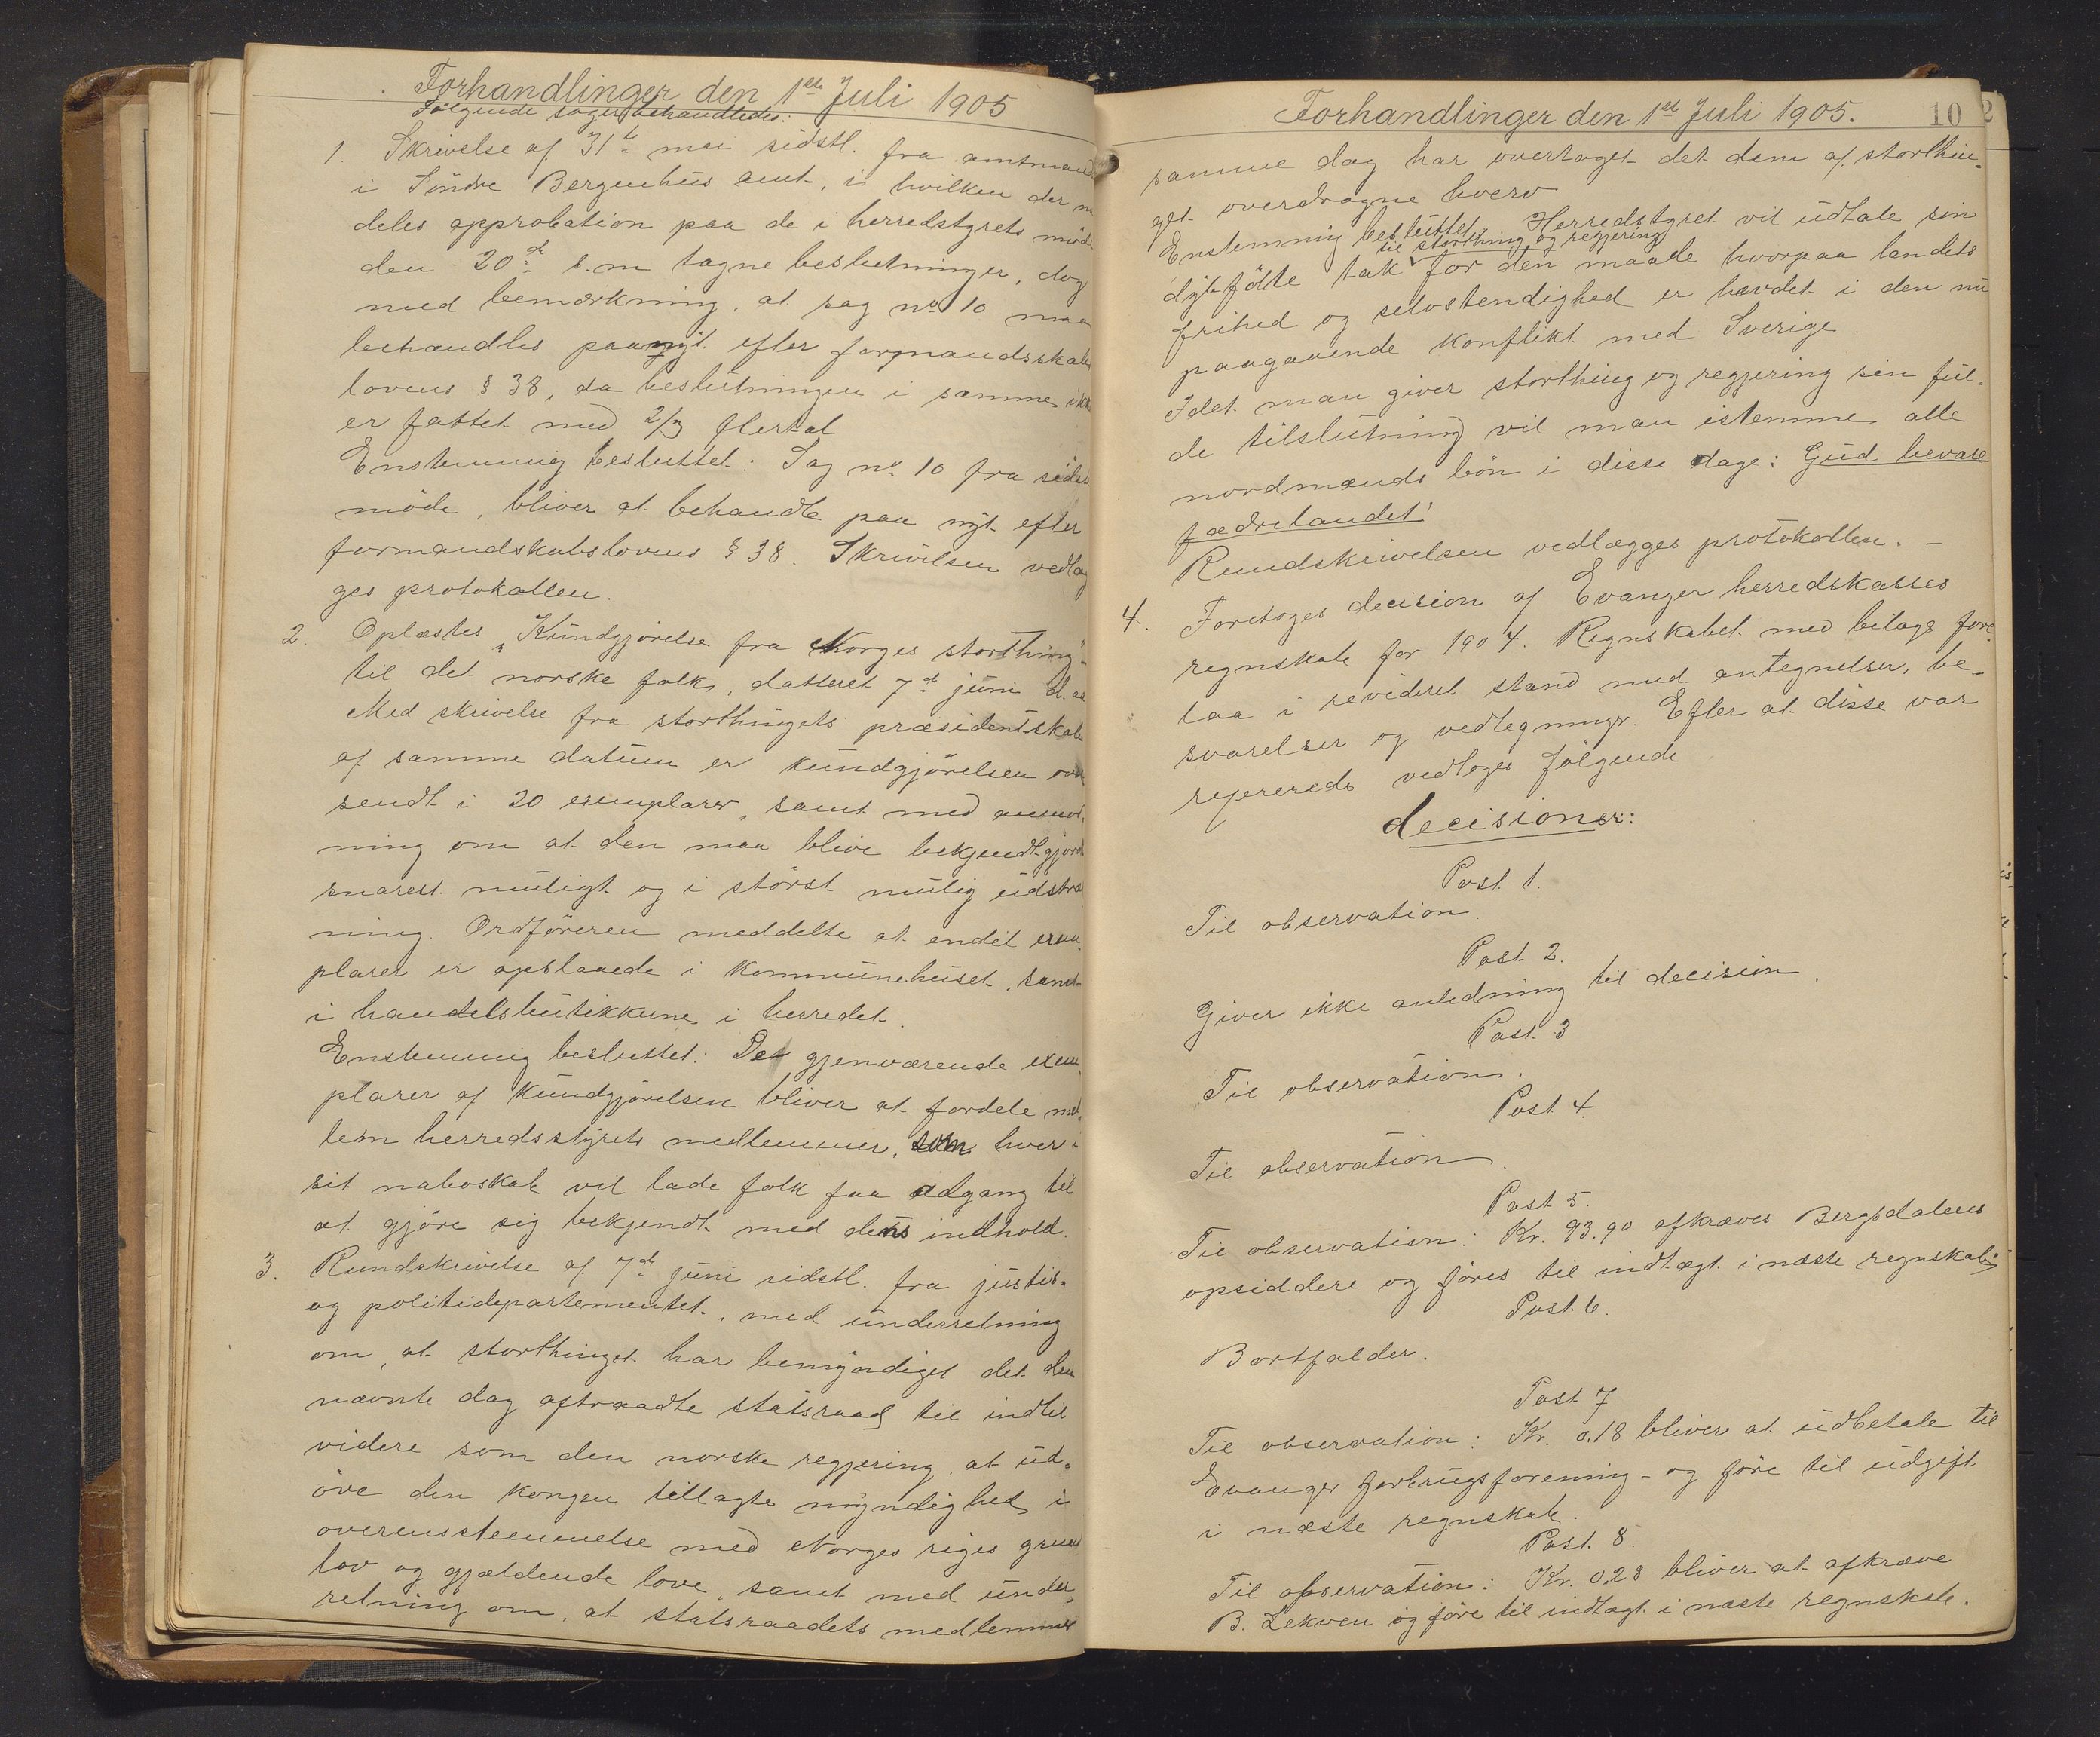 Forhandlinger den 1ste Juli 1905
Følgende sager behandledes:
1. Skrivelse af 31te mai sidstl. fra amtmand
i Söndre Bergenhus amt, i hvilken der
deles approbation paa de i herredstyrets möde
den 20de s.m tagne beslutninger, dog
med bemærkning, at sag no 10 maa
behandles paanyt efter formandsskabs
lovens § 38, da beslutningen i samme ikke
er fattet med 2/3 flertal
Enstemmig besluttet: Sag no 10 fra sidste
möde, bliver at behandle paa nyt efter
formandskabslovens § 38. Skrivelsen vedlæg
ges protokollen.
2. Oplæstes „Kundgjörelse fra Norges storthing"
til det norske folk, datteret 7de juni d. aa
Med skrivelse fra storthingets præsidentskab
af samme datum er kundgjörelsen over
sendt i 20 exemplarer, samt med anmod.
ning om at den maa blive bekjendtgjort
snarest muligt og i störst mulig udstræk
ning. Ordföreren meddelte at endel exem.
plarer er opslaaede i kommunehuset, samt
i handelsbutikkerne i herredet.
Enstemmig besluttet: De gjenværende exem.
plarer af kundgjörelsen bliver at fordele mel.
lem herredsstyrets medlemmer, som hver i
sit naboskab vil lade folk faa adgang til
at gjöre sig bekjendt med dens indhold.
3. Rundskrivelse af 7de juni sidstl. fra justis-
og politidepartementet, med underretning
om, at storthinget har bemyndiget det den
nævnte dag aftraadte statsraad til indtil
videre som den norske regjering at ud-
öve den kongen tillagte myndighed i
overensstemmelse med Norges riges grund
lov og gjældende love, samt med under,
retning om, at statsraadets medlemmer
Forhandlinger den 1ste Juli 1905. 10 2
samme dag har overtaget det dem af storthin-
get overdragne hverv
Enstemmig besluttet, Herredstyret vil udtale sin
til storthing og regjering
dybfölte tak for den maade hvorpaa landets
frihed og selvstendighed er hævdet i den nu
paagaaende konflikt med Sverige.
Idet man giver storthing og regjering sin ful.
de tilslutning vil man istemme alle
nordmænds bön i disse dage: Gud bevare
fædrelandet!
Rundskrivelsen vedlægges protokollen. –
4. Foretoges decision af Evanger herredskasses
regnskab for 1904. Regnskabet med bilage fore
laa i revideret stand med antegnelser, be-
svarelser og vedtegninger. Efter at disse var
refererede vedtoges følgende
decisioner:
Post 1.
Til observation.
Post 2.
Giver ikke anledning til decision.
Post 3
Til observation.
Post 4.
Til observation.
Post 5.
Til observation: Kr. 93.90 afkræves Bergsdalens
opsiddere og föres til indtægt i næste regnskab.
Post 6.
Bortfalder.
Post 7
Til observation: Kr. 0.18 bliver at udbetale til
Evanger forbrugsforening - og före til udgift
i næste regnskab.
Post 8.
Til observation: Kr. 0.28 bliver at afkræve
B. Lekven og före til indtægt i næste regnskab.